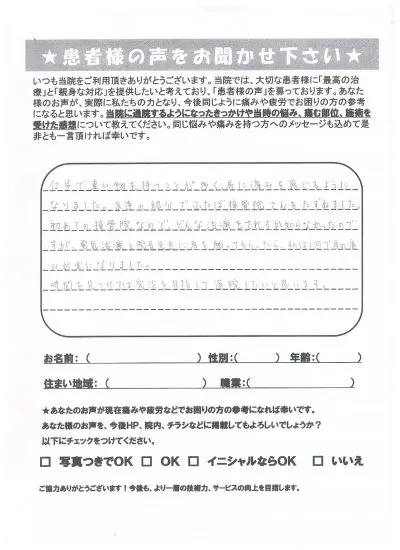 ★患者様の声をお聞かせ下さい★
いつも当院をご利用頂きありがとうございます。当院では、大切な患者様に「最高の治
療」と「親身な対応」を提供したいと考えており、「患者様の声」を募っております。あなた
様のお声が、実際に私たちの力となり、今後同じように痛みや疲労でお困りの方の参考
になると思います。当院に通院するようになったきっかけや当時の悩み、痛む部位、施術を
受けた感想について教えてください。同じ悩みや痛みを持つ方へのメッセージも込めて是
非とも一言頂ければ幸いです。
仕事で重い物を持つことが多く肩に痛みを感じるように
なりました。友達の紹介でふたば接骨院さんをたずねました。
初めての接骨院なので、どんな治療をされるか知らなかったので
すが、電気治療と院長先生に肩を触ってもらったら、 1回で肩の痛
みが楽になりました。
時間を見つけては完治を目指して通院したいと思います。
お名前：（ ） 性別：（ ） 年齢：（ ）
住まい地域：（ ） 職業：（ ）
★あなたのお声が現在痛みや疲労などでお困りの方の参考になれば幸いです。
あなた様のお声を、今後HP、院内、チラシなどに掲載してもよろしいでしょうか？
以下にチェックをつけてください。
□ 写真つきでOK □ OK □ イニシャルならOK □ いいえ
ご協力ありがとうございます！今後も、より一層の技術力、サービスの向上を目指します。